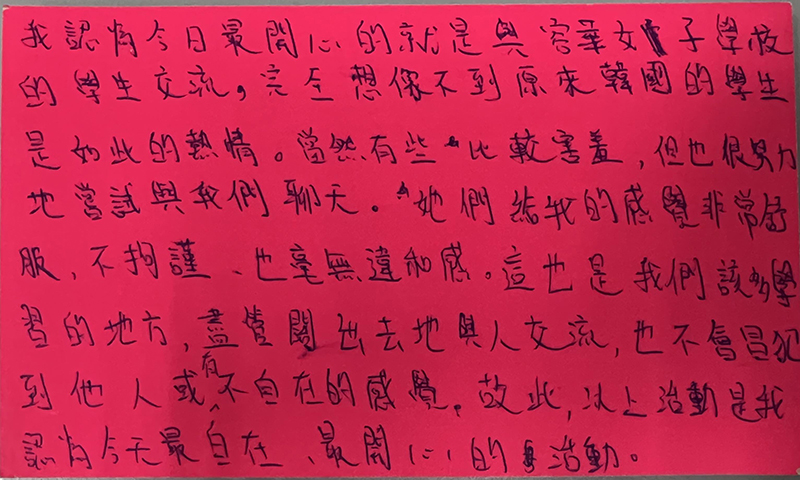 我認為今日最開心的就是與容華女子學校
的學生交流。完全想像不到原來韓國的學生
是如此的熱情。當然有些比較害羞，但也很努力
地嘗試與我們聊天。她們給我的感覺非常舒
服、不拘謹、也毫無違和感。這也是我們該多學
習的地方，盡管開出去地與人交流，也不會冒犯
到他人或有不自在的感覺。故此，以上活動是我
認為今天最自在、最開心的活動。